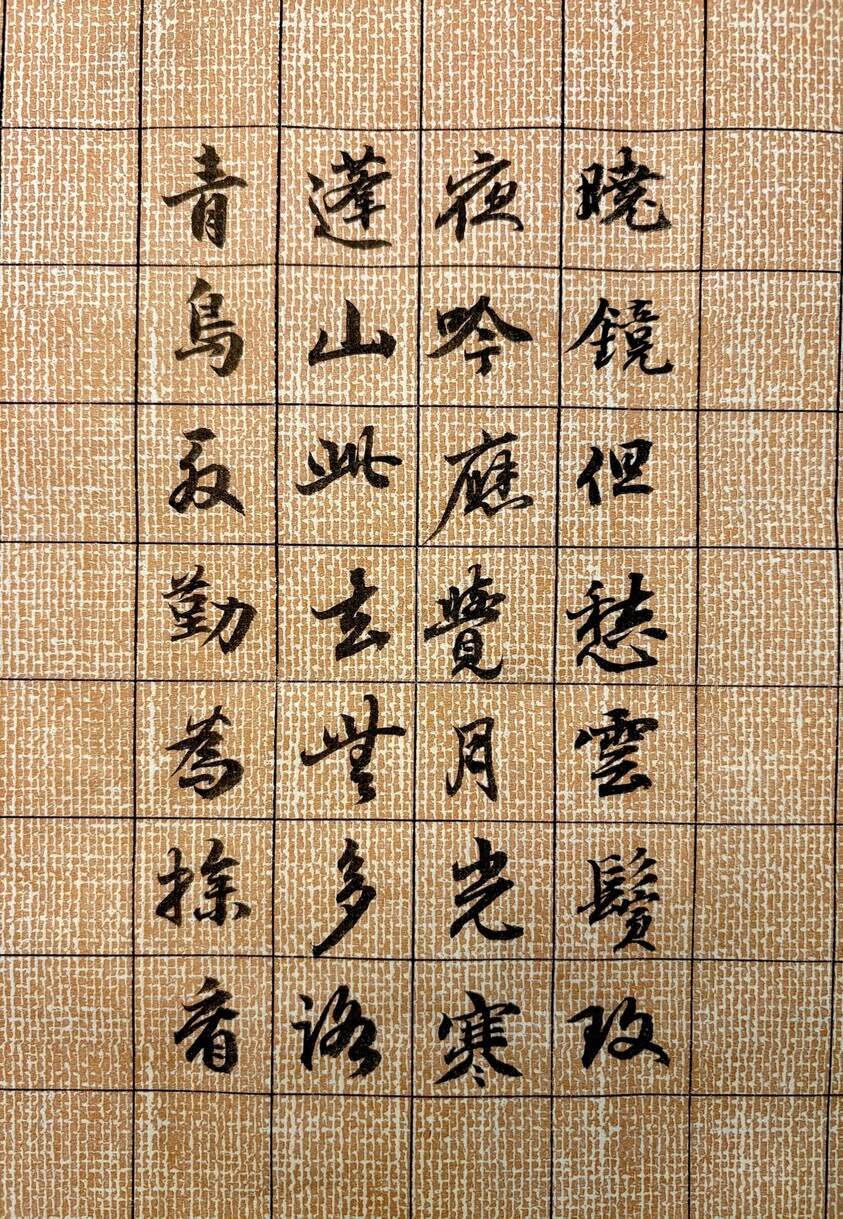 曉鏡但愁雲鬢改
夜吟應覺月光寒
蓬山此去無多路
青鳥殷勤為探看